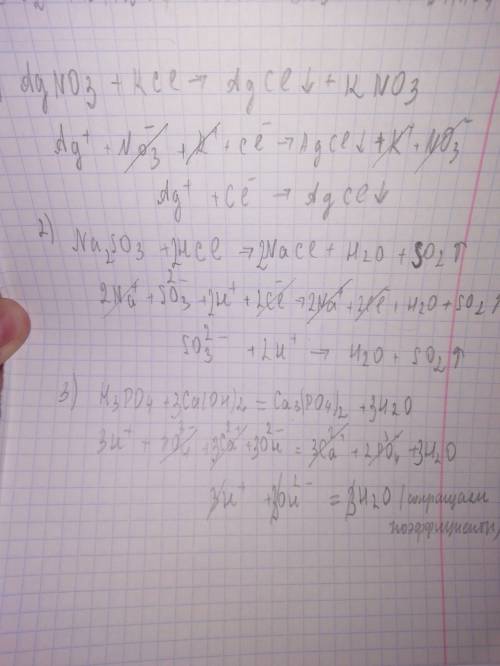 AgNO3 + KCl → AgCl↓ + KNO3
Ag⁺ + NO3⁻ + K⁺ + Cl⁻ → AgCl↓ + K⁺ + NO3⁻
Ag⁺ + Cl⁻ → AgCl↓
2) Na2SO3 + 2HCl → 2NaCl + H2O + SO2↑
2Na⁺ + SO3²⁻ + 2H⁺ + 2Cl⁻ → 2Na⁺ + 2Cl⁻ + H2O + SO2↑
SO3²⁻ + 2H⁺ → H2O + SO2↑
3) H3PO4 + 3Ca(OH)2 = Ca3(PO4)2 + 3H2O
3H⁺ + PO4³⁻ + 3Ca²⁺ + 3OH²⁻ = 3Ca²⁺ + 2PO4³⁻ + 3H2O
3H⁺ + 3OH²⁻ = 3H2O (сокращаем
коэффициенты)